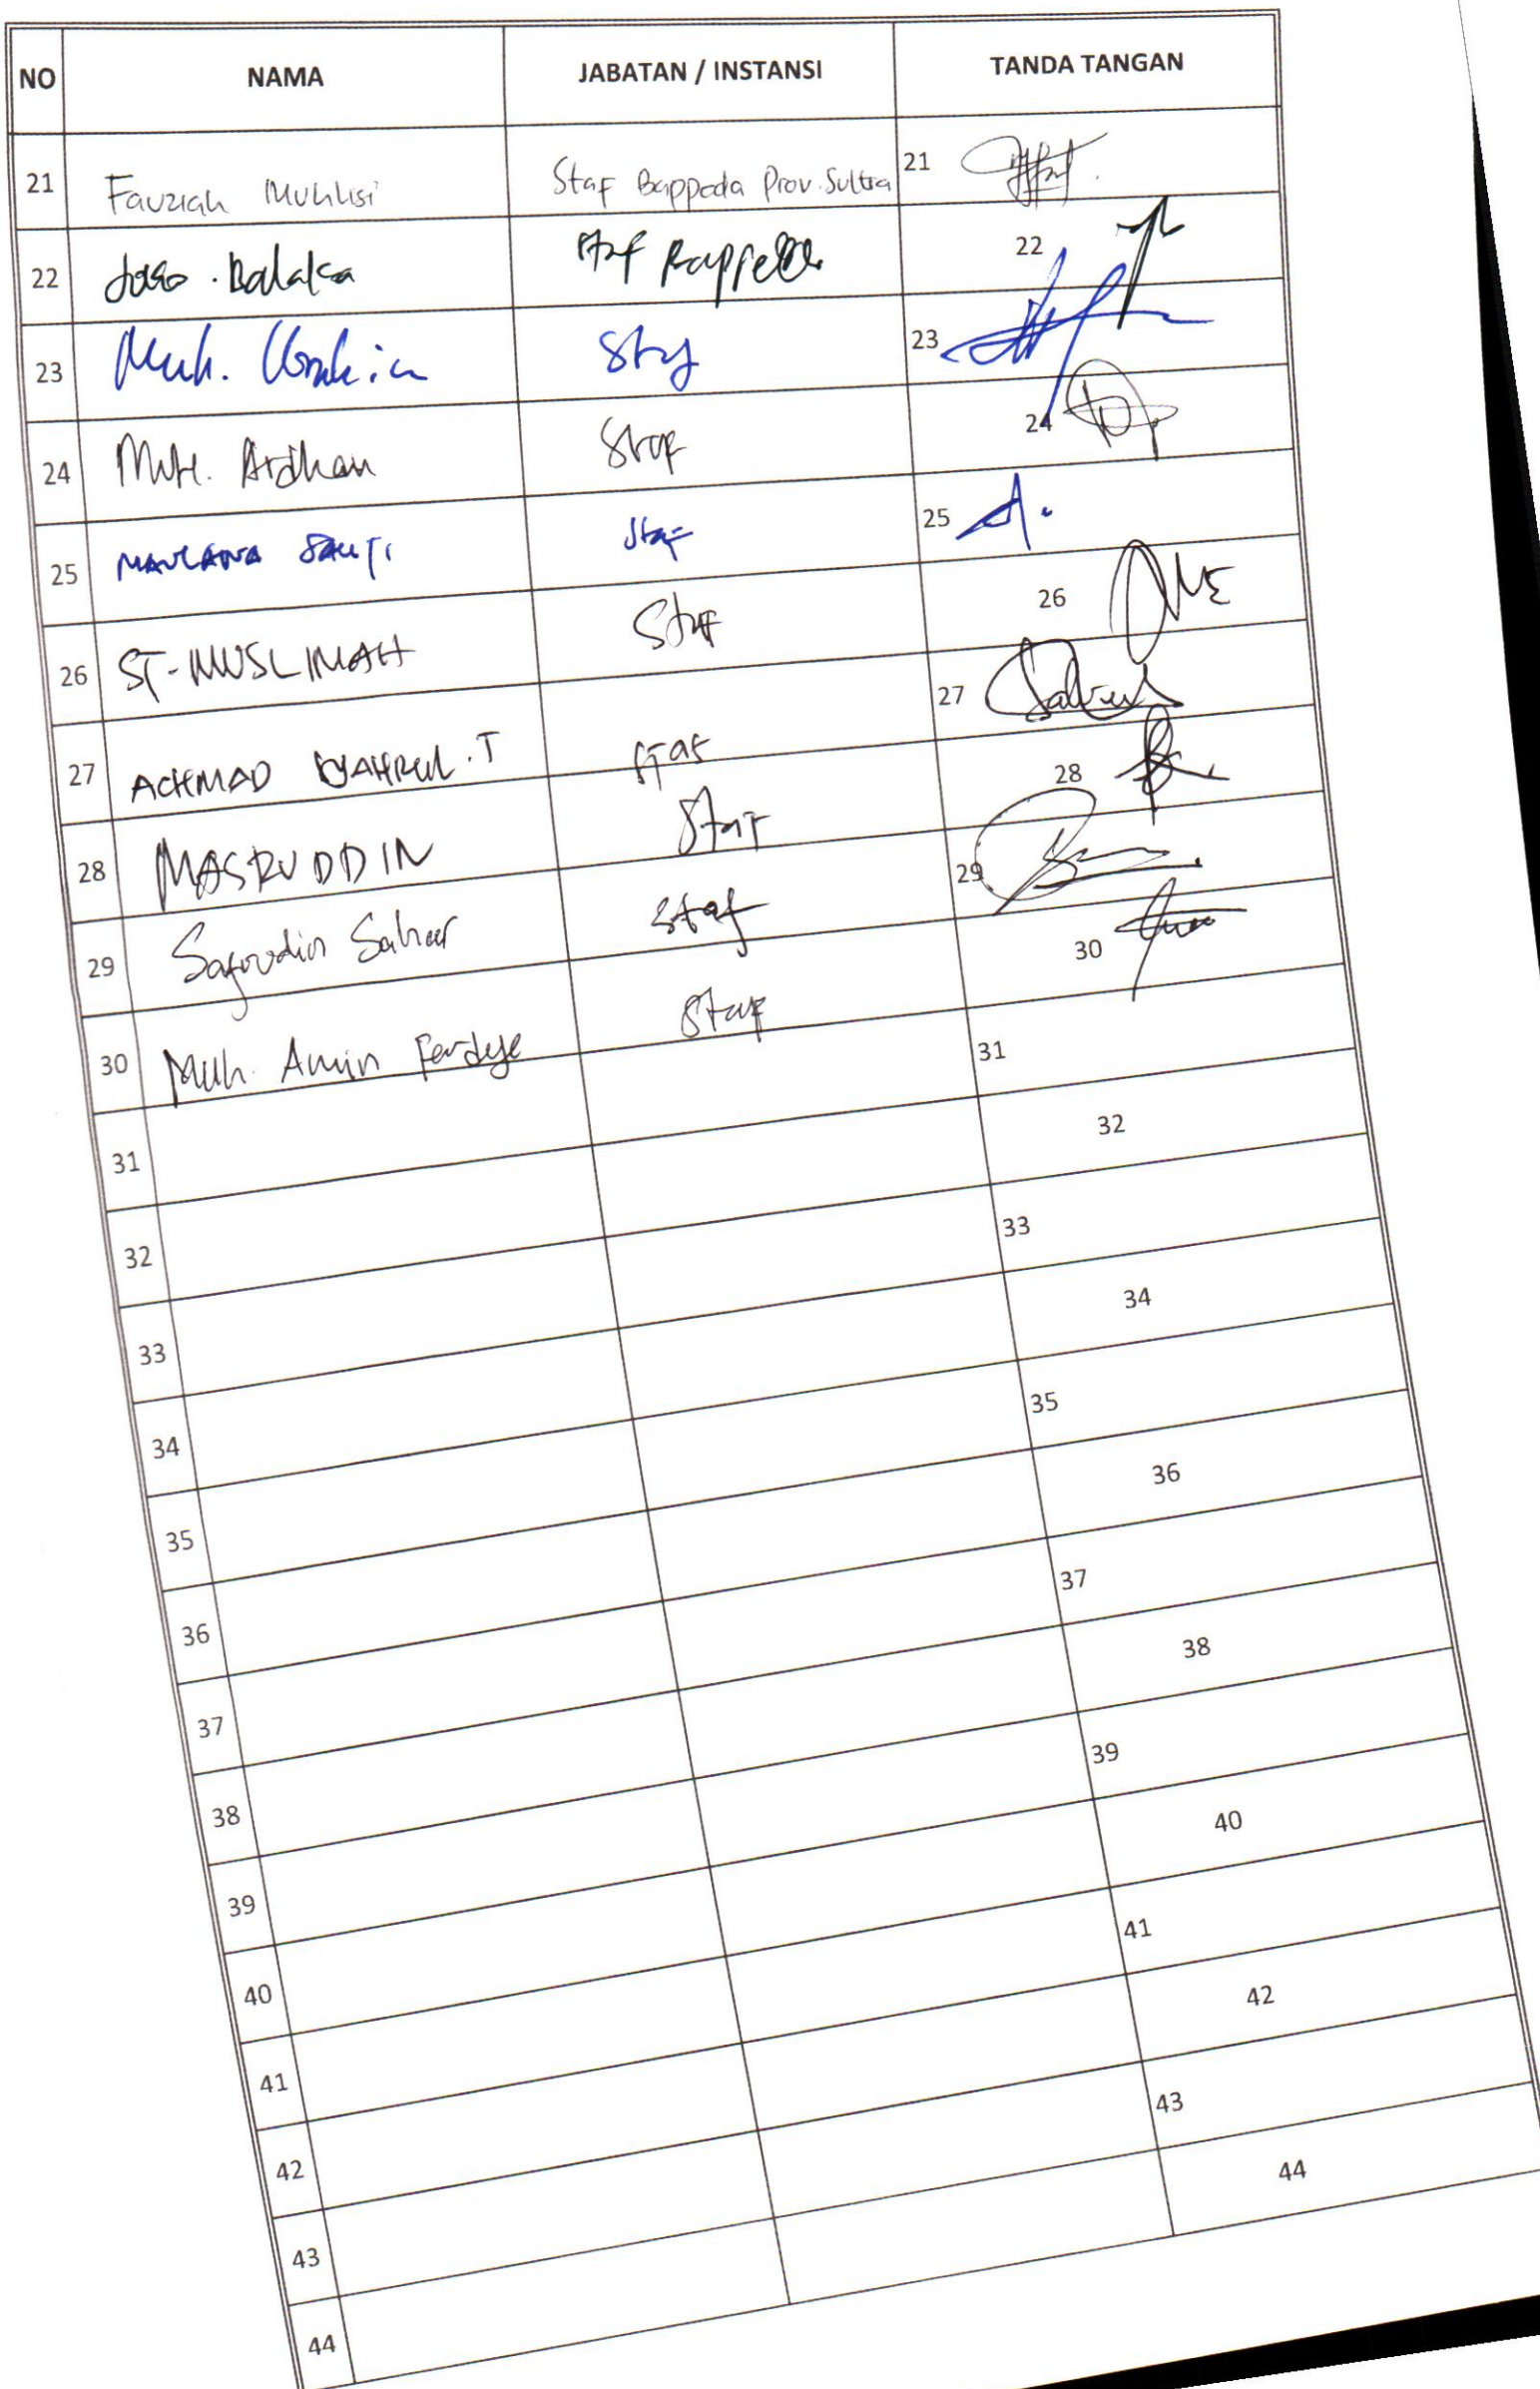 NO NAMA JABATAN / INSTANSI TANDA TANGAN
21 Fauziah Muhlisi Staf Bappeda Prov. Sultra 21
22 Balaka Staf Bappeda 22
23 Muh. Staf 23
24 Muh. Ardhan Staf 24
25 MAULANA Staf 25
26 ST. MUSLIMAH Staf 26
27 ACHMAD SYAHRUL. T Staf 27
28 MASRUDDIN Staf 28
29 Safrudin Staf 29
30 Muh. Amin Staf 30
31 31
32 32
33 33
34 34
35 35
36 36
37 37
38 38
39 39
40 40
41 41
42 42
43 43
44 44